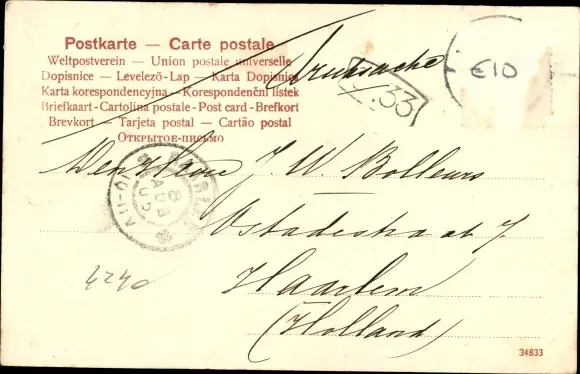 Postkarte — Carte postale
Weltpostverein — Union postale universelle
Dopisnice — Levelező-Lap — Karta Dopisnica
Karta korespondencyjna — Korespondenční listek
Briefkaart - Cartolina postale - Post card - Brefkort
Brevkort — Tarjeta postal — Cartão postal
Открытое-письмо
Drucksache
33
€10
HAARLEM
8 AUG
J. W. Bolleurs
Ostadestraat 7.
Haarlem
(Holland)
4240
34833